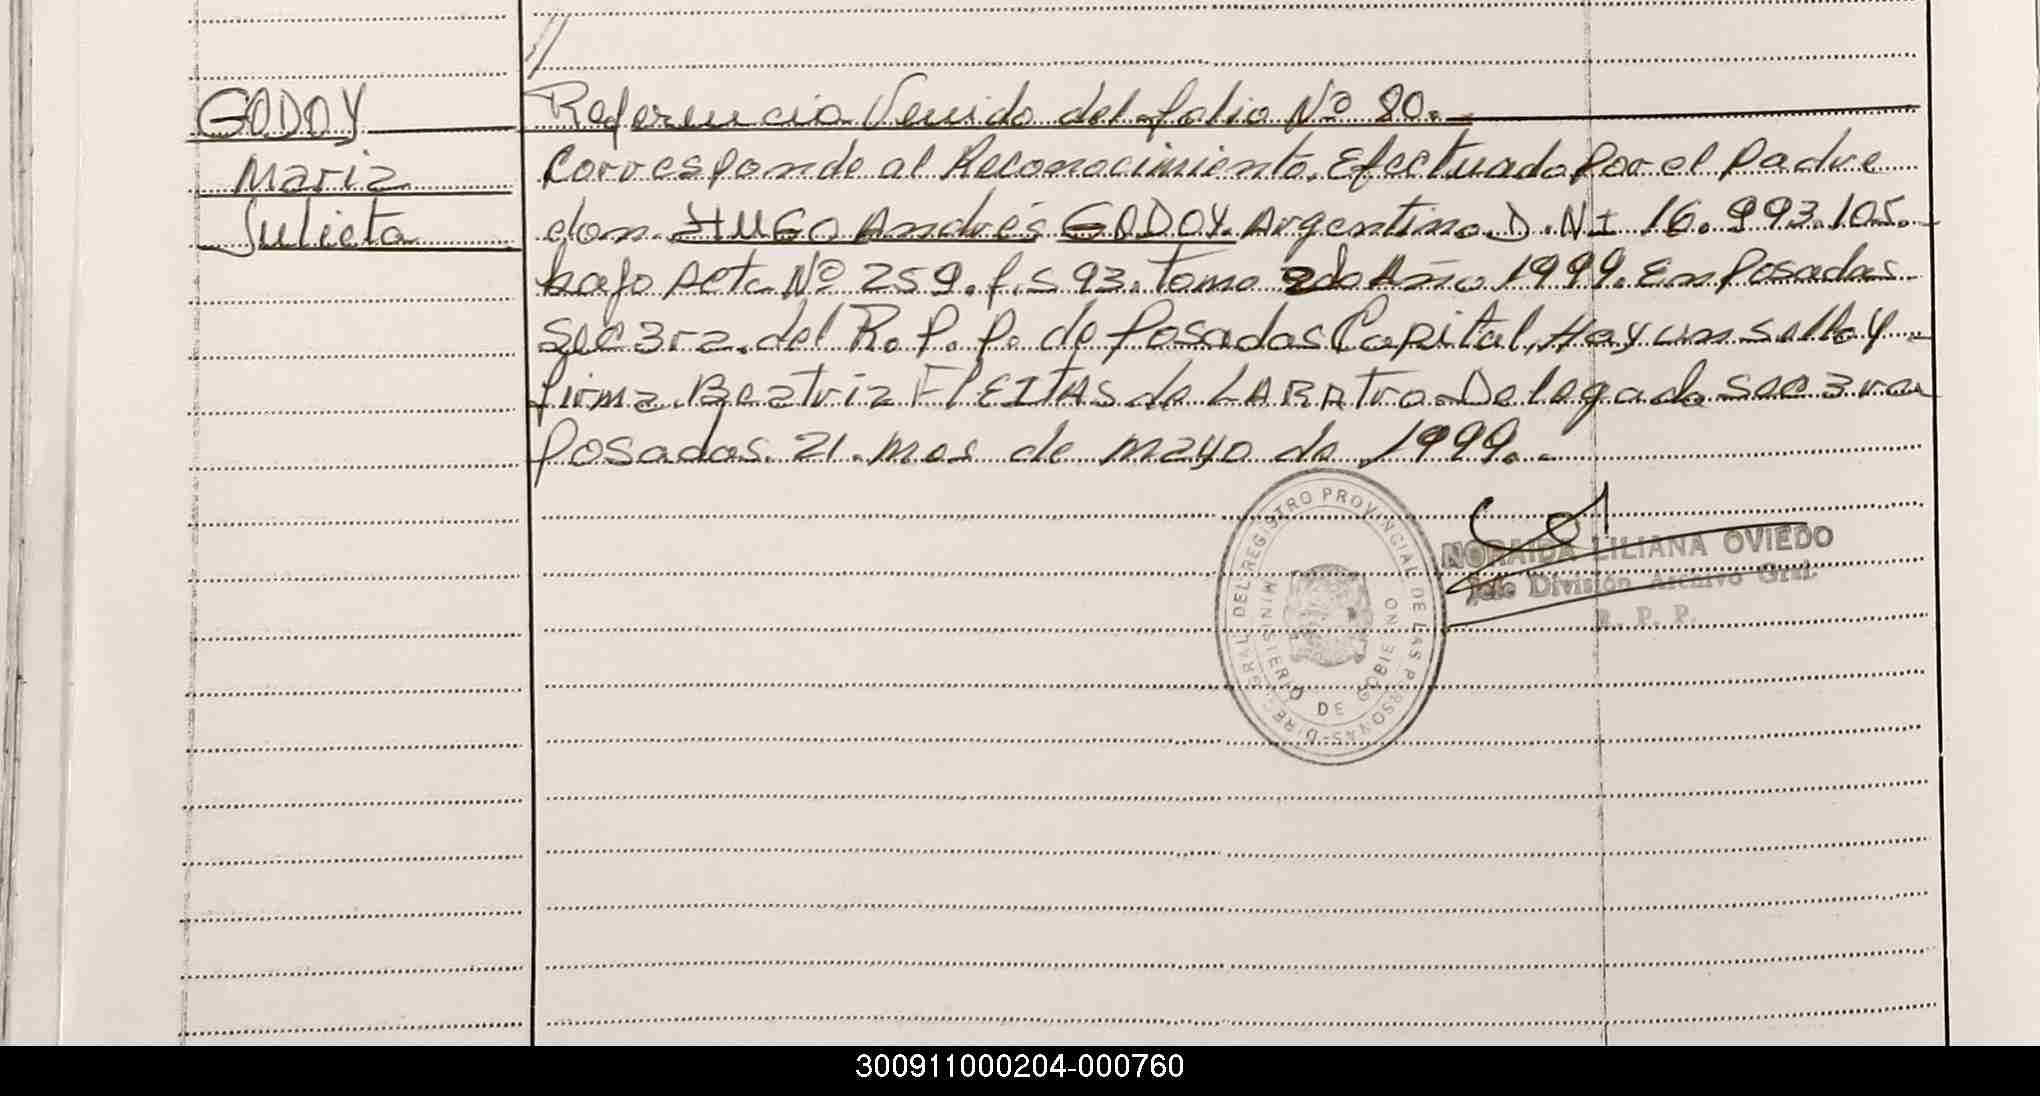 GODOY
Maria
Julieta
Referencia Venido del folio Nº 80.-
Corresponde al Reconocimiento. Efectuado por el Padre
don. HUGO Andrés GODOY. Argentino. D.NI 16.993.105.-
bajo Acta Nº 259. f.s 93. Tomo 2do Año 1999. En Posadas
Sec 3ra. del R. P. P. de Posadas Capital, Hay un sello y
firma. Beatriz FLEITAS de LARAtro. Delegada Sec 3ra
Posadas. 21. mes de mayo de 1999.-
DIREC. GRAL DEL REGISTRO PROVINCIAL DE LAS PERSONAS-
MINISTERIO DE GOBIERNO
NORAIDA LILIANA OVIEDO
Jefe División Archivo Gral.
R. P. P.
300911000204-000760